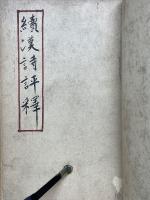 續漢詩評釋